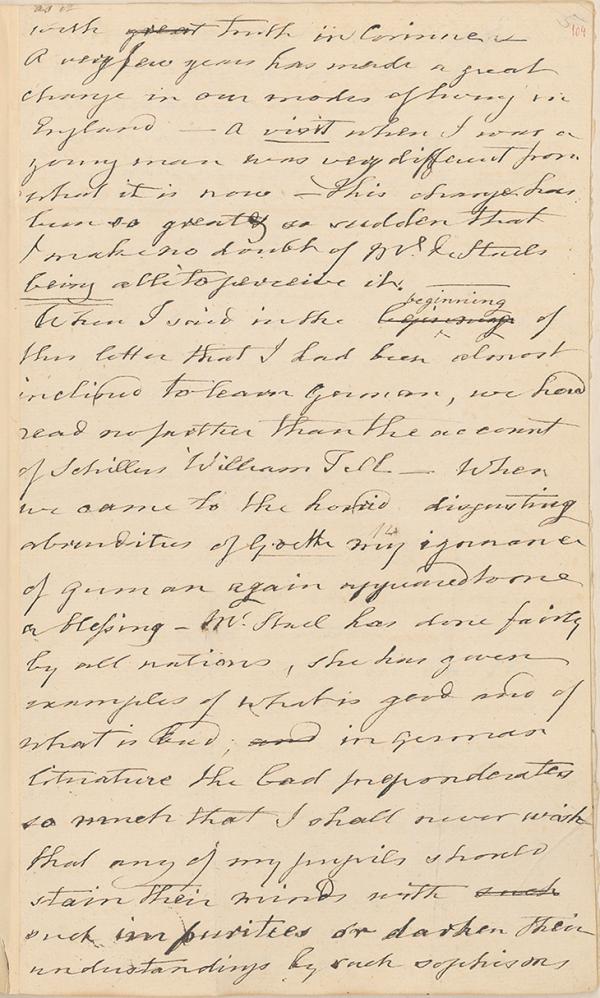 as it
109
with great truth in Corinne &
A very few years has made a great
change in our modes of living in
England — A visit when I was a
young man was very different from
what it is now — This change has
been so great & so sudden that
I make no doubt of Mrs. de Staels
being able to perceive it.
beginning
When I said in the beginning of
this letter that I had been almost
inclined to learn German, we had
read no further than the account
of Schillers William Tell — When
we came to the horrid disgusting
absurdities of Goethe my ignorance
of German again appeared to me
a blessing — Me. Stael has done fairly
by all nations, she has given
examples of what is good and of
what is bad, and in German
literature the bad preponderates
so much that I shall never wish
that any of my pupils should
stain their minds with such
such impurities or darken their
understandings by such sophisms